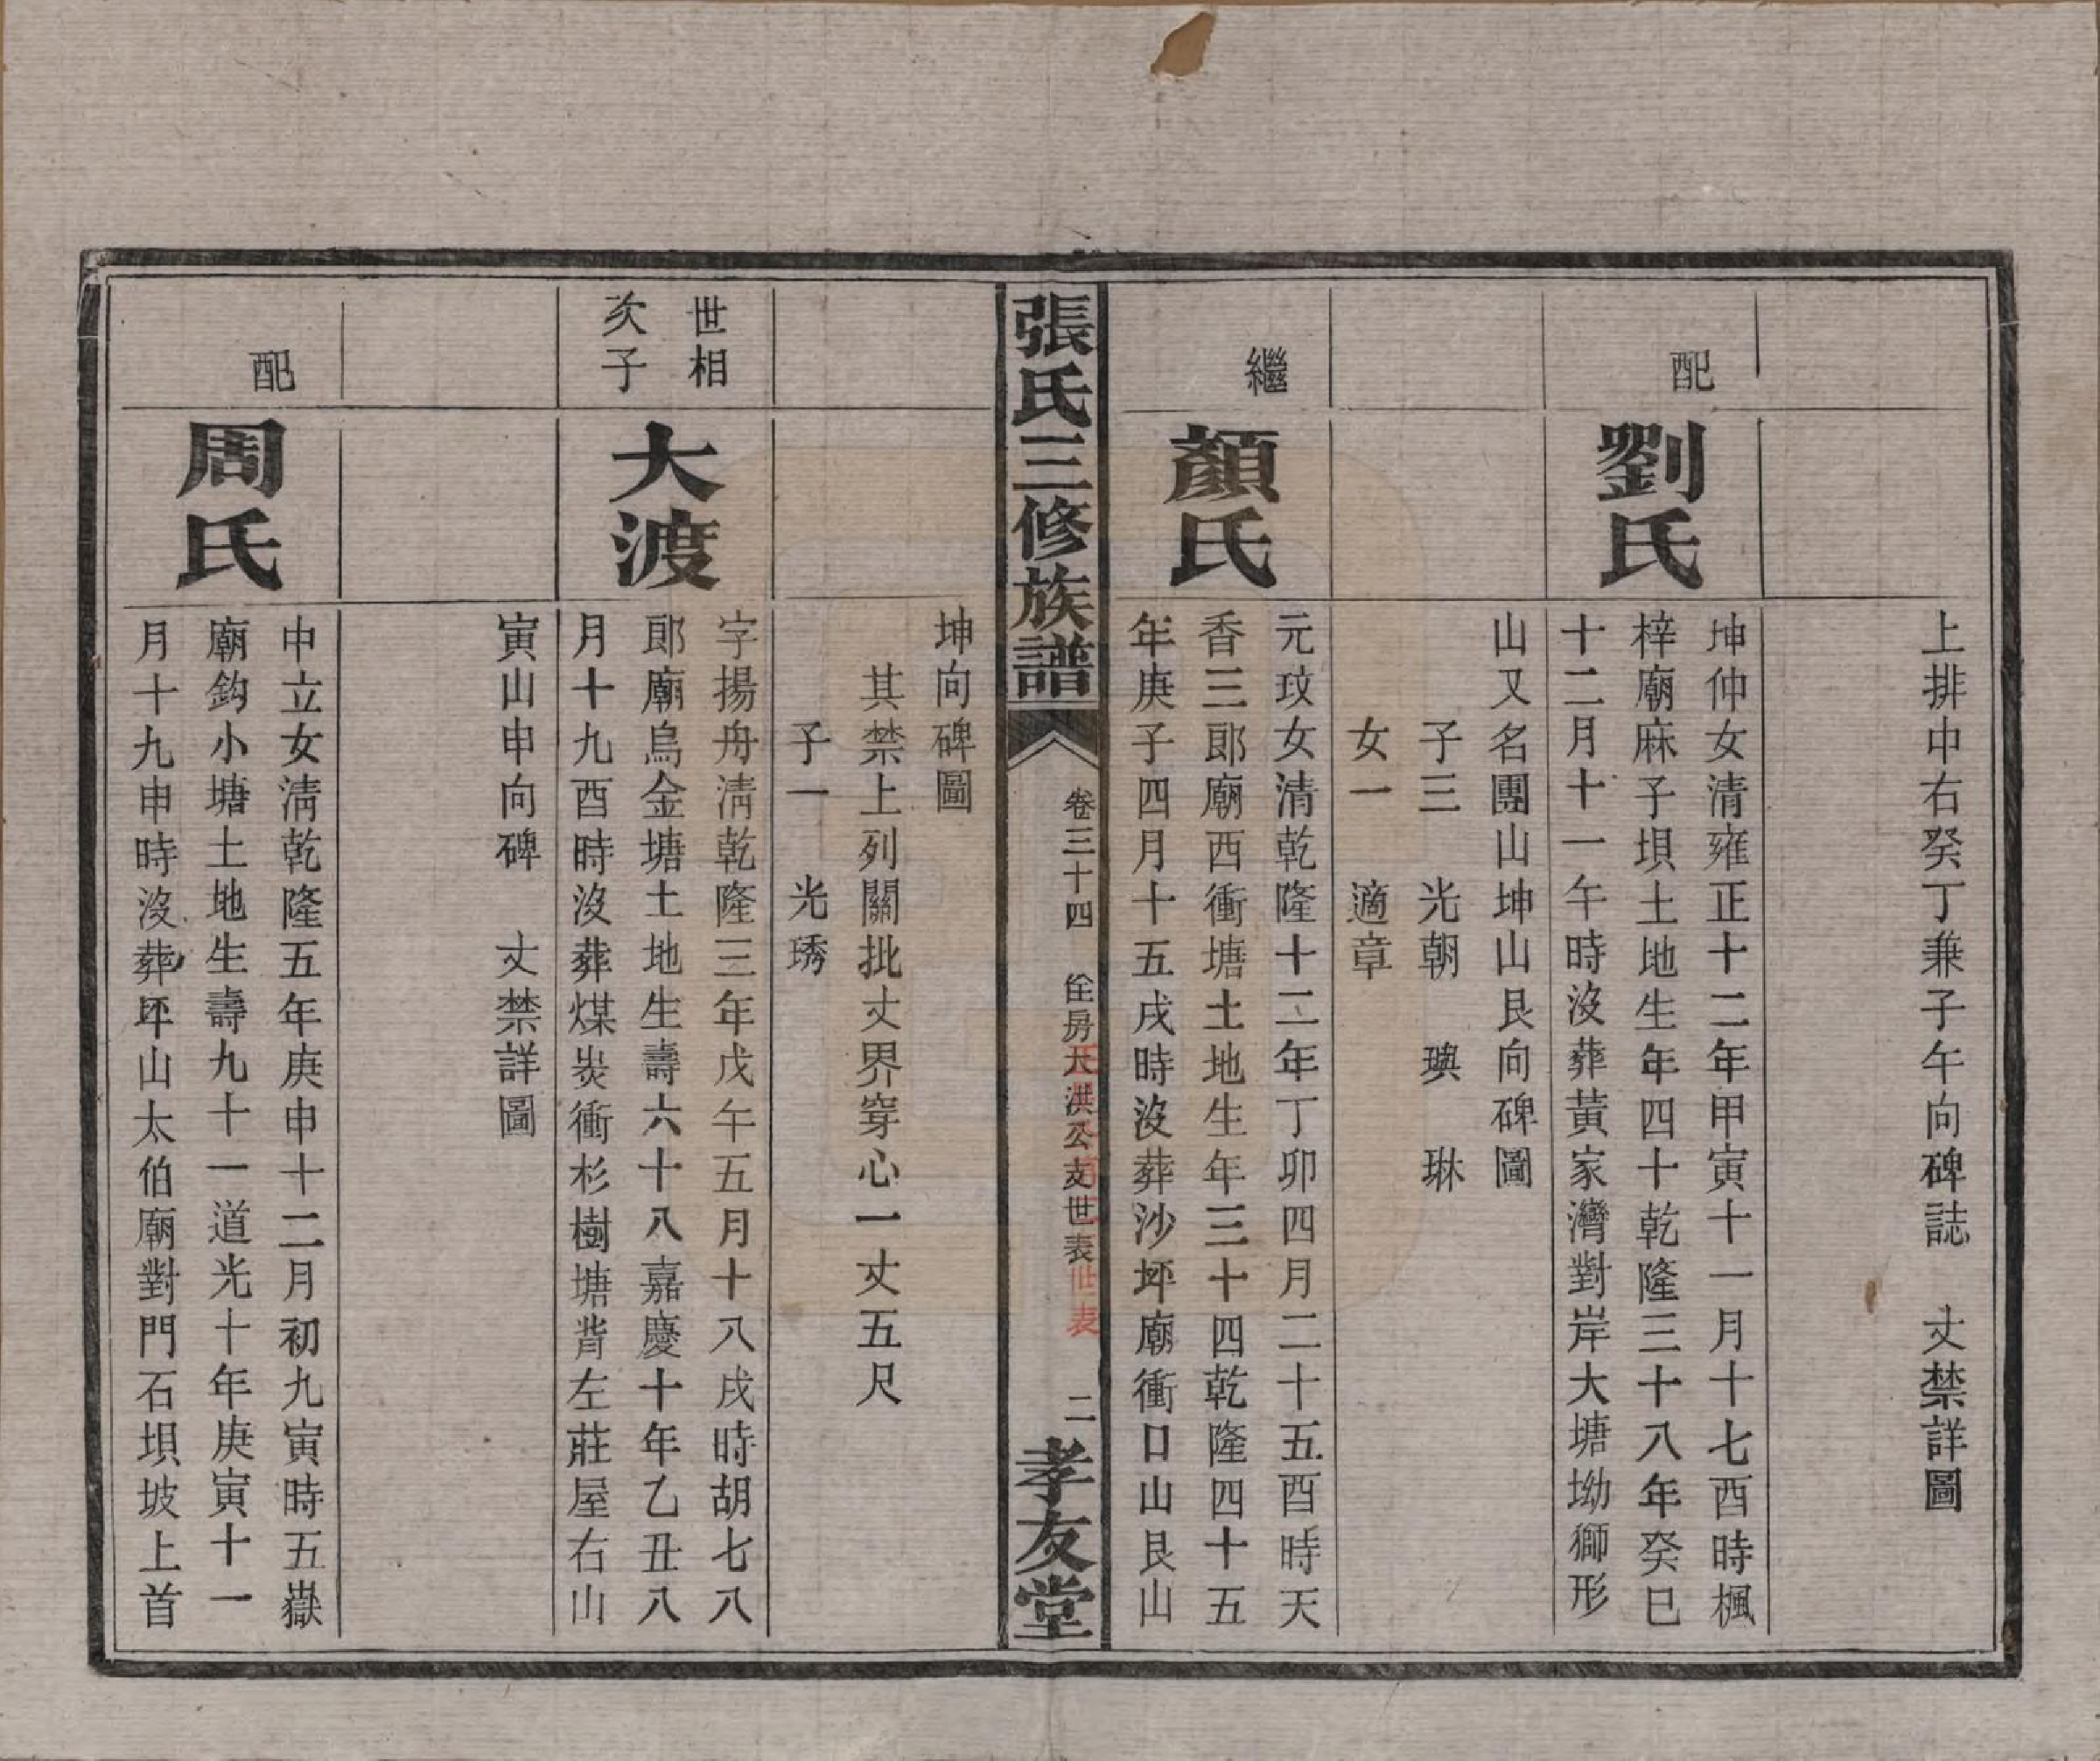 上排中右癸丁兼子午向碑誌 丈禁詳圖
配
劉氏
坤仲女清雍正十二年甲寅十一月十七酉時楓
梓廟麻子垻土地生年四十乾隆三十八年癸巳
十二月十一午時沒葬黃家灣對岸大塘坳獅形
山又名團山坤山艮向碑圖
子三 光朝 璵 琳
女一 適章
繼
顏氏
元玟女清乾隆十二年丁卯四月二十五酉時天
香三郎廟西衝塘土地生年三十四乾隆四十五
年庚子四月十五戌時沒葬沙坪廟衝口山艮山
張氏三修族譜
卷三十四 佺房大洪公支世表
二
孝友堂
坤向碑圖
其禁上列關批丈界穿心一丈五尺
子一 光琇
世相
次子
大渡
字揚舟清乾隆三年戊午五月十八戌時胡七八
郎廟烏金塘土地生壽六十八嘉慶十年乙丑八
月十九酉時沒葬煤炭衝杉樹塘背左莊屋右山
寅山申向碑 丈禁詳圖
配
周氏
中立女清乾隆五年庚申十二月初九寅時五嶽
廟鈎小塘土地生壽九十一道光十年庚寅十一
月十九申時沒葬坪山太伯廟對門石垻坡上首